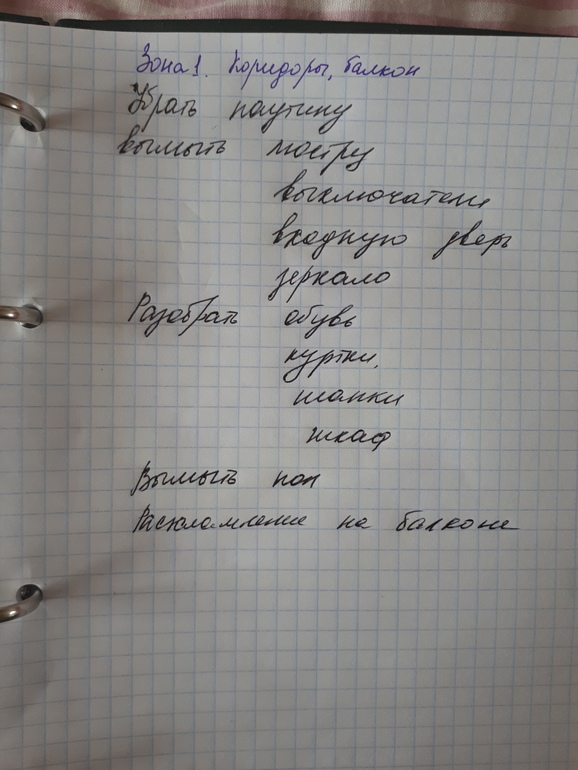 Зона 1. Коридоры, балкон
Убрать паутину
вымыть люстру
выключатели
входную дверь
зеркало
Разобрать обувь
куртки,
шапки
шкаф
Вымыть пол
Расхламление на балконе